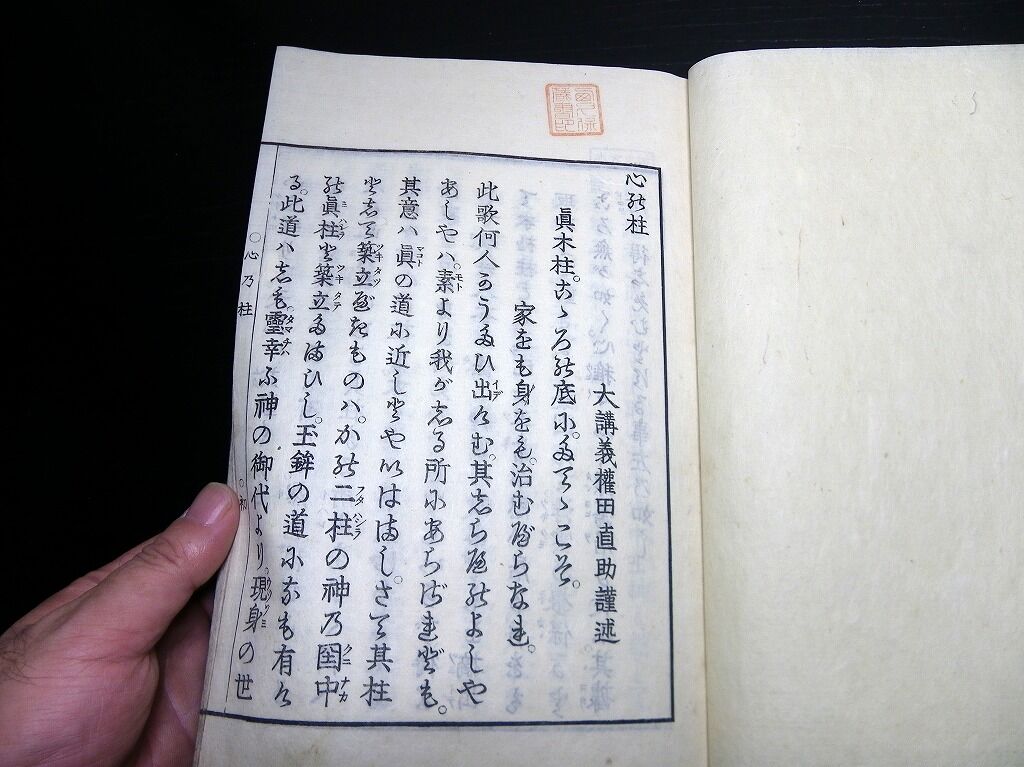 心の柱
大講義權田直助謹述
眞木柱。こゝろの底に。たてゝこそ。
家をも身をも。治むべらなれ。
此歌何人かうたひ出けむ。其しらべのよしや
あしやハ。素より我がしる所にあらざれども。
其意ハ眞の道に近しとやいはまし。さて其柱
として築立べきものハ。かの二柱の神乃囯中
の眞柱と築立たまひし。玉鉾の道になも有け
る。此道ハしも。靈幸ふ神の御代より。現身の世
○心乃柱 ○初